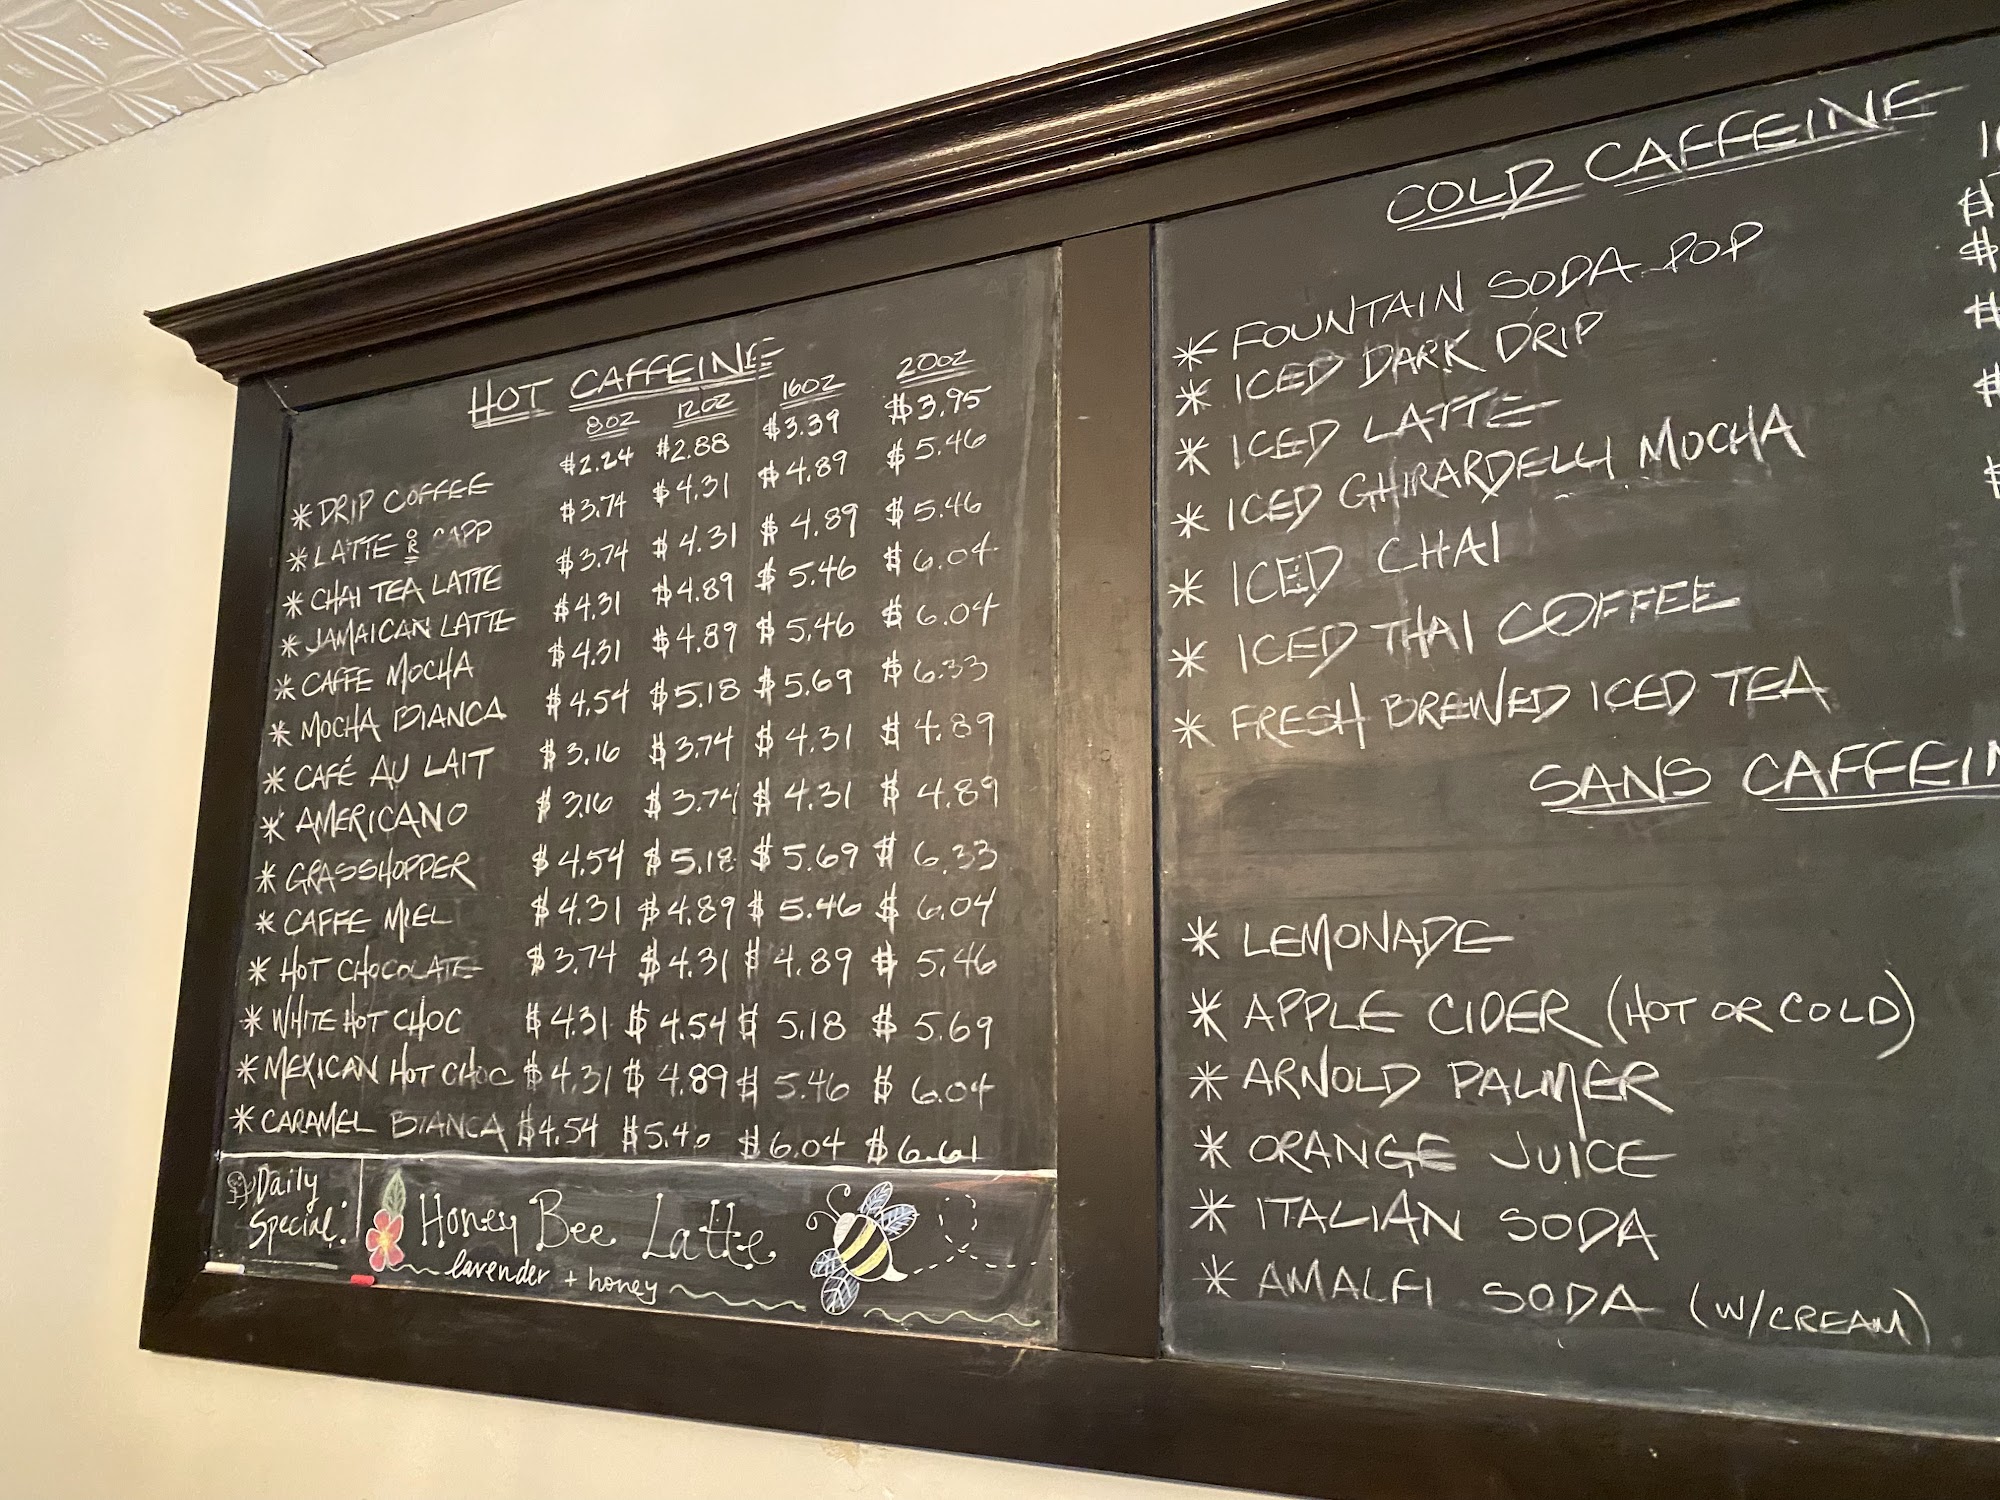 HOT CAFFEINE
8OZ 12OZ 16OZ 20OZ
* DRIP COFFEE $2.24 $2.88 $3.39 $3.95
* LATTE OR CAPP $3.74 $4.31 $4.89 $5.46
* CHAI TEA LATTE $3.74 $4.31 $4.89 $5.46
* JAMAICAN LATTE $4.31 $4.89 $5.46 $6.04
* CAFFE MOCHA $4.31 $4.89 $5.46 $6.04
* MOCHA BIANCA $4.54 $5.18 $5.69 $6.33
* CAFÉ AU LAIT $3.16 $3.74 $4.31 $4.89
* AMERICANO $3.16 $3.74 $4.31 $4.89
* GRASSHOPPER $4.54 $5.18 $5.69 $6.33
* CAFFE MIEL $4.31 $4.89 $5.46 $6.04
* HOT CHOCOLATE $3.74 $4.31 $4.89 $5.46
* WHITE HOT CHOC $4.31 $4.54 $5.18 $5.69
* MEXICAN HOT CHOC $4.31 $4.89 $5.46 $6.04
* CARAMEL BIANCA $4.54 $5.46 $6.04 $6.61
Daily
Special:
Honey Bee Latte
lavender + honey
COLD CAFFEINE
* FOUNTAIN SODA POP
* ICED DARK DRIP
* ICED LATTE
* ICED GHIRARDELLI MOCHA
* ICED CHAI
* ICED THAI COFFEE
* FRESH BREWED ICED TEA
SANS CAFFEIN
* LEMONADE
* APPLE CIDER (HOT OR COLD)
* ARNOLD PALMER
* ORANGE JUICE
* ITALIAN SODA
* AMALFI SODA (W/CREAM)